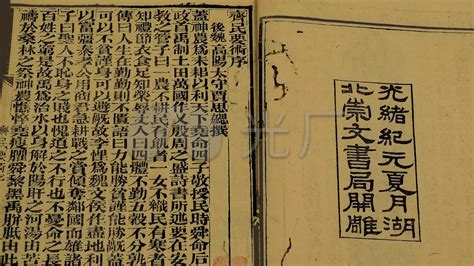 光緒紀元夏月湖
北崇文書局開雕
齊民要術序
後魏高陽太守賈思勰撰
蓋神農為耒耜以利天下堯命四子敬授民時舜命后
政首禹制土田萬國作乂殷周之盛詩書所述要在
教之管子曰一農不耕民有飢者一女不織民有寒者
知禮節衣食足知榮辱丈人曰四體不勤五穀不分
傳曰人生在勤勤則不匱語曰力能勝貧謹能勝
可以不貧謹身可以避禍故李悝為魏文侯作盡地利
以富強秦孝公用商君急耕戰之賞傾奪鄰國而雄諸
人不恥身之賤也愧道之不行也不憂命之長
百姓之窮是故禹為治水以身解於陽盱之河湯由苦
禱於桑林之祭神農憔悴堯瘦癯舜黎黑禹胼胝
光厂